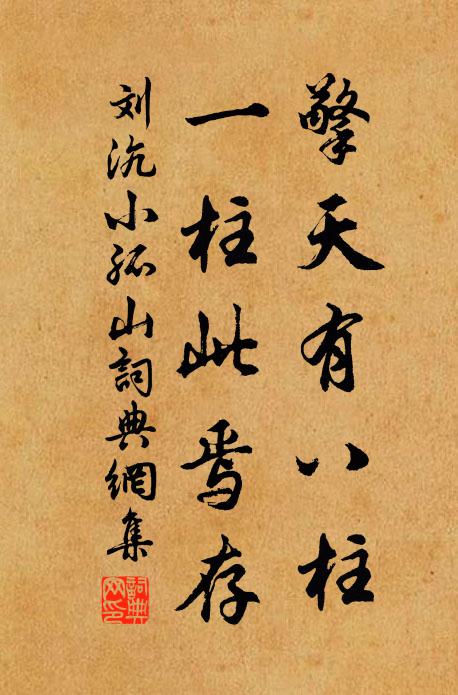 擎天有八柱
一柱此焉存
刘沆小孤山詞典網集
詞典网印